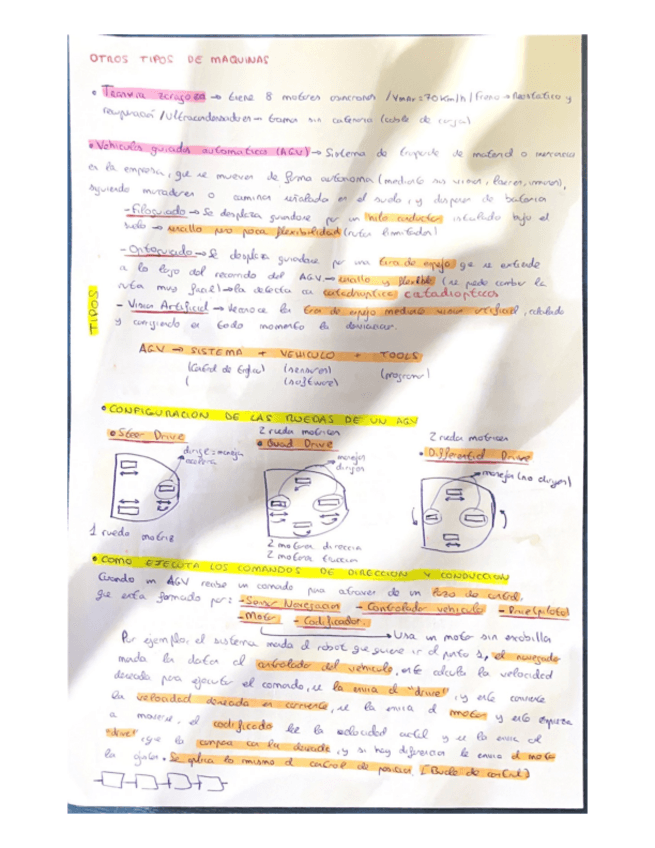 OTROS TIPOS DE MAQUINAS
• Tranvia zaragoza → tiene 8 motores asincronos / Vmax = 70 Km/h / Freno → Reostatico y
recuperacion / Ultracondensadores → tramos sin catenaria (cable de
• Vehiculos guiados automaticos (AGV) → Sistema de transporte de material o mercancias
en la empresa, que se mueven de forma autonoma (mediante
siguiendo marcadores o caminos señalados en el suelo, y dispone de bateria
- Filoguiado → Se desplaza guiandose por un hilo conductor instalado bajo el
suelo → sencillo pero poca flexibilidad (rutas limitadas)
- Optoguiado → Se desplaza guiandose por una tira de espejo que se extiende
a lo largo del recorrido del AGV → sencillo y flexible (se puede cambiar la
ruta muy facil) → la detecta un catadioptrico catadioptcos
TIPOS
- Vision Artificial → reconoce la tira de espejo mediante vision artificial, calculado
y corrigiendo en todo momento la desviacion.
AGV → SISTEMA + VEHICULO + TOOLS
(Control de trafico) (sensores) (programar)
( (software)
• CONFIGURACION DE LAS RUEDAS DE UN AGV
2 rueda motrices 2 rueda motrices
• Steer Drive • Quad Drive • Differential Drive
dirige = maneja
acelera
manejan
dirigen
manejan (no dirigen)
1 rueda motriz
2 motores direccion
2 motores traccion
• COMO EJECUTA LOS COMANDOS DE DIRECCION Y CONDUCCION
Cuando un AGV recibe un comando pasa atraves de un de control,
que esta formado por: - Sensor Navegacion - Controlador vehiculo - Drive (piloto)
- Motor - Codificador.
→ Usa un motor sin escobilla
Por ejemplo, el sistema manda al robot que quiere ir al punto 1, el navegador
manda los datos al controlador del vehiculo, este calcula la velocidad
deseada para ejecutar el comando, se la envia al "driver", y este convierte
la velocidad deseada en corriente, se la envia al motor y este empieza
a moverse, el codificador lee la velocidad actual y se la envia al
"driver", que la compara con la deseada, y si hay diferencia le envia al motor
la ajusta. Se aplica lo mismo al control de posicion. [Bucle de control]